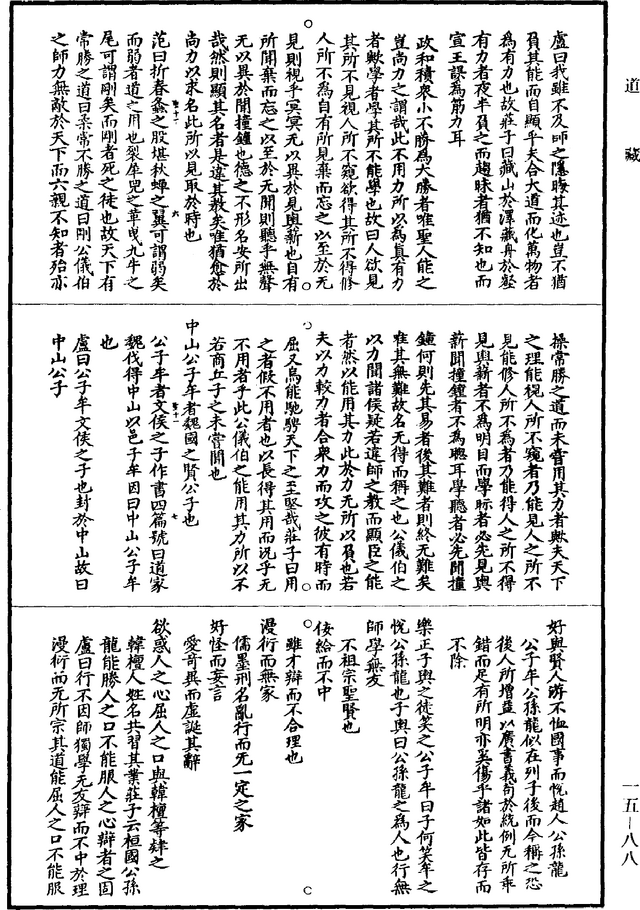 道藏
盧曰我雖不及師之隱晦其迹也豈不猶
負其能而自顯乎夫合大道而化萬物者
為有力也故莊子曰藏山於澤藏舟於壑
有力者夜半負之而趨昧者猶不知也而
宣王誤為筋力耳
政和積衆小不勝為大勝者唯聖人能之
豈尚力之謂哉此不用力所以為真有力
者歟學者學其所不能學也故曰人欲見
其所不見視人所不窺欲得其所不得修
人所不為自有所見棄而忘之以至於无
見則視乎冥冥无以異於見輿薪也自有
所聞棄而忘之以至於无聞則聽乎無聲
无以異於聞撞鐘也德之不形名安所出
哉然則顯其名者是違其教矣唯猶愈於
尚力以求名此所以見取於時也
范曰折春螽之股堪秋蟬之翼可謂弱矣
而弱者道之用也裂犀兕之革曳九牛之
尾可謂剛矣而剛者死之徒也故天下有
常勝之道曰柔常不勝之道曰剛公儀伯
之師力無敵於天下而六親不知者殆亦
操常勝之道而未嘗用其力者歟夫天下
之理能視人所不窺者乃能見人之所不
見能修人所不為者乃能得人之所不得
見輿薪者不為明目而學眎者必先見輿
薪聞撞鐘者不為聰耳學聽者必先聞撞
鐘何則先其易者後其難者則終无難矣
唯其無難故名无得而稱之也公儀伯之
以力聞諸侯疑若違師之教而顯臣之能
者然以能用其力此於力无所以負也若
夫以力較力者合衆力而攻之彼有時而
屈又烏能馳騁天下之至堅哉莊子曰用
之者假不用者也以長得其用而況乎无
不用者乎此公儀伯之能用其力所以不
若商丘子之未嘗聞也
中山公子牟者魏國之賢公子也
公子牟者文侯之子作書四篇號曰道家
魏伐得中山以邑子牟因曰中山公子牟
也
盧曰公子牟文侯之子也封於中山故曰
中山公子
好與賢人游不恤國事而悅趙人公孫龍
公子牟公孫龍似在列子後而今稱之恐
後人所增益以廣書義苟於統例无所乖
錯而足有所明亦奚傷乎諸如此皆存而
不除
樂正子輿之徒笑之公子牟曰子何笑牟之
悅公孫龍也子輿曰公孫龍之為人也行無
師學無友
不祖宗聖賢也
佞給而不中
雖才辯而不合理也
漫衍而無家
儒墨刑名亂行而无一定之家
好怪而妄言
愛奇異而虛誕其辭
欲惑人之心屈人之口與韓檀等肄之
韓檀人姓名共習其業莊子云桓團公孫
龍能勝人之口不能服人之心辯者之固
盧曰行不因師獨學无友辯而不中於理
漫衍而无所宗其道能屈人之口不能服
一五—八八